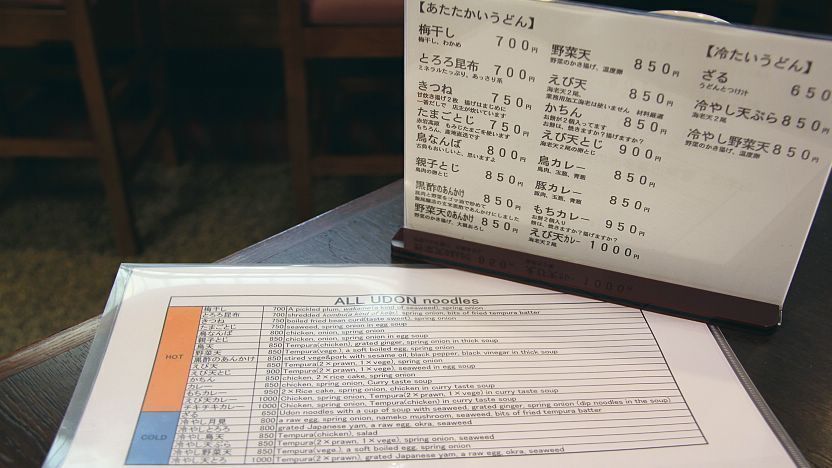 【あたたかいうどん】
梅干し 700円
梅干し、わかめ
とろろ昆布 700円
ミネラルたっぷり、あっさり系
きつね 750円
甘炊き揚げ2枚 揚げはまじめに
一番だしで 店主が炊いています
たまごとじ 750円
もちろん、産地直送です
鳥なんば 800円
古負もおいしいと、思いますよ
親子とじ 850円
鳥肉の卵とじ
黒酢のあんかけ 850円
豚肉と野菜をゴマ油で炒めて
野菜天のあんかけ 850円
野菜のかき揚げ、大根おろし
野菜天 850円
野菜のかき揚げ、温度卵
えび天 850円
海老天2尾、
業務用加工海老は使いません 材料厳選
かちん 850円
お餅が2個入ってます
お餅は、焼きますか?揚げますか?
えび天とじ 900円
海老天2尾の卵とじ
鳥カレー 850円
鳥肉、玉葱、青葱
豚カレー 850円
豚肉、玉葱、青葱
もちカレー 950円
お餅2個入り
餅は、焼きますか?揚げますか?
えび天カレー 1000円
海老天2尾
【冷たいうどん】
ざる 650
うどんとつけ汁
冷やし天ぷら 850円
海老天2尾
冷やし野菜天 850円
野菜のかき揚げ、温度卵
ALL UDON noodles
HOT
梅干し 700 A pickled plum, wakame(a kind of seaweed), spring onion
とろろ昆布 700 shredded kombu(a kind of kelp), spring onion, bits of fried tempura batter
きつね 750 boiled fried bean curd(taste sweet), spring onion
たまごとじ 750 seaweed, spring onion in egg soup
鳥なんば 800 chicken, onion, spring onion
親子とじ 850 chicken, onion, spring onion in egg soup
鳥天 850 Tempura(chicken), grated ginger, spring onion in thick soup
野菜天 850 Tempura(vege.), a soft boiled egg, spring onion
黒酢のあんかけ 850 stired vege&pork with sesame oil, black pepper, black vinegar in thick soup
えび天 850 Tempura(2×prawn, 1×vege), spring onion
えび天とじ 900 Tempura(2×prawn, 1×vege), seaweed in egg soup
かちん 850 chicken, 2×rice cake, spring onion
カレー 850 chicken, spring onion, Curry taste soup
もちカレー 950 2×Rice cake, spring onion, chicken in curry taste soup
えび天カレー 1000 Chicken, spring onion, Tempura(2×prawn, 1×vege) in curry taste soup
チキチキカレー 1000 Chicken, spring onion, Tempura(chicken) in curry taste soup
COLD
ざる 650 Udon noodles with a cup of soup with seaweed, grated ginger, spring onion (dip noodles in the soup)
冷やし月見 800 a raw egg, spring onion, nameko mushroom, seaweed, bits of fried tempura batter
冷やしとろろ 800 grated Japanese yam, a raw egg, okra, seaweed
冷やし鳥天 850 Tempura(chicken), salad
冷やし天ぷら 850 Tempura(2×prawn, 1×vege), spring onion
冷やし野菜天 850 Tempura(vege.), a soft boiled egg, spring onion
冷やし天とろ 1000 Tempura(2×prawn), grated Japanese yam, a raw egg, okra, seaweed